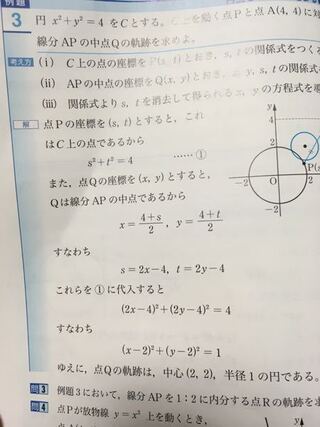 例題
3 円 x²+y²=4 をCとする。C上を動く点Pと点A(4, 4)に対
線分APの中点Qの軌跡を求めよ。
考え方 (i) C上の点の座標をP(s, t)とおき，s, tの関係式をつくる
(ii) APの中点の座標をQ(x, y)とおき， y, s, tの関係
(iii) 関係式よりs, tを消去して得られるx, yの方程式を
解 点Pの座標を(s, t)とすると，これ
はC上の点であるから
s²+t²=4 ……①
また，点Qの座標を(x, y)とすると，
Qは線分APの中点であるから
x=(4+s)/2, y=(4+t)/2
すなわち
s=2x-4, t=2y-4
これらを①に代入すると
(2x-4)²+(2y-4)²=4
すなわち
(x-2)²+(y-2)²=1
ゆえに，点Qの軌跡は，中心(2, 2)，半径1の円である。
問3 例題3において，線分APを1:2に内分する点Rの軌跡を求
問4 点Pが放物線 y=x² 上を動くとき，
y
4
2
-2 O 2
P(s
-2